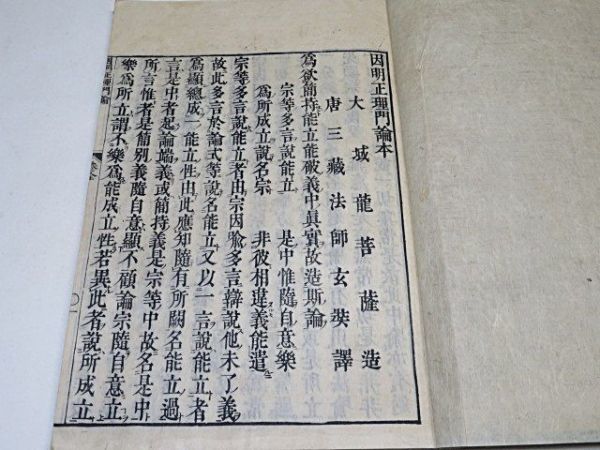 因明正理門論本
大域龍菩薩造
唐三藏法師玄奘譯
為欲簡持能立能破義中真實故造斯論
宗等多言說能立 是中惟隨自意樂
為所成立說名宗 非彼相違義能遣
宗等多言說能立者由宗因喻多言辯說他未了義
故此多言於論式等說名能立又以一言說能立者
為顯總成一能立性由此應知隨有所闕名能立過
言是中者起論端義或簡持義是宗等中故名是中
所言惟者是簡別義隨自意顯不顧論宗隨自意立
樂為所立謂不樂為能成立性若異此者說所成立
因明正理門論